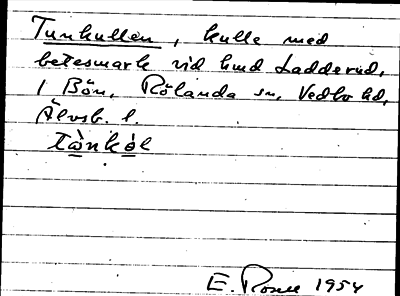 Tunkullen, kulle med
betesmark vid hmd Ladderud,
1 Bön, Rölanda sn, Vedbo hd,
Älvsb. l.
tànkòl
E. Rosell 1954